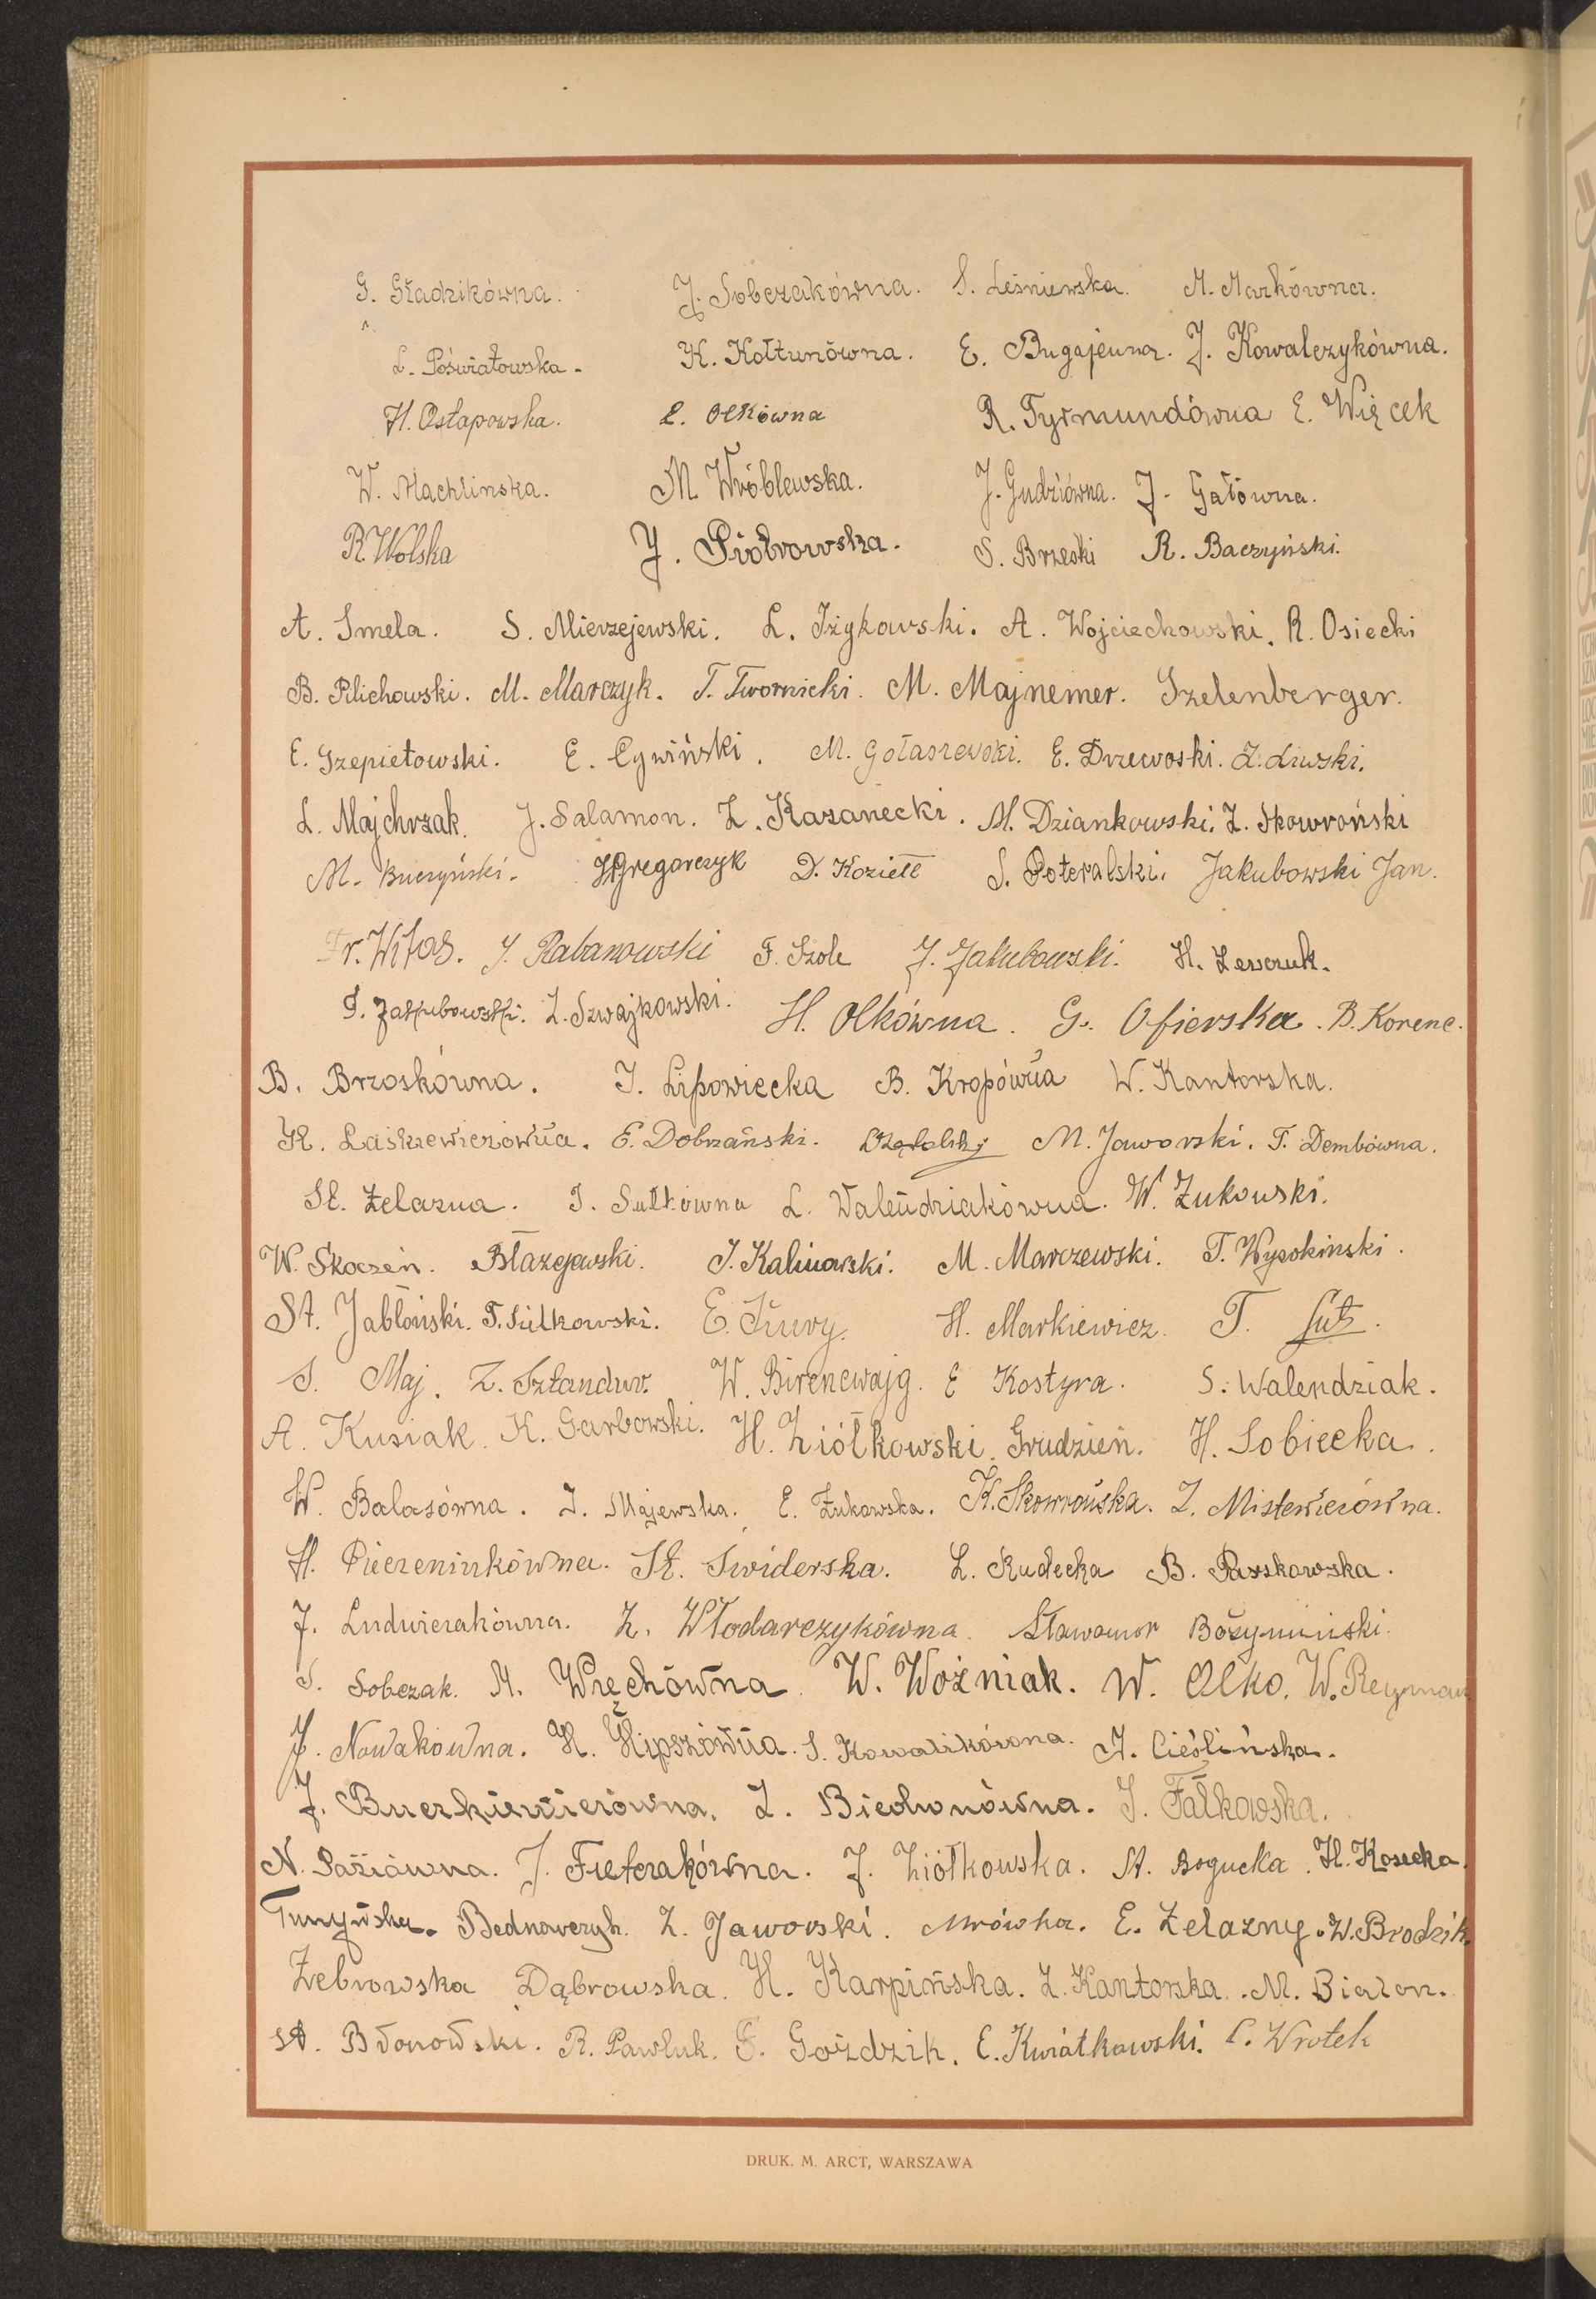 G. Gładzikówna. J. Sobczakówna. S. Leśniewska. M. Markówna.
L. Poświatowska. K. Kołtunówna. E. Bugajewna. J. Kowalczykówna.
H. Ostapowska. L. Olkówna R. Tyrmundówna E. Więcek
W. Machlinska. M. Wróblewska. J. Gudziówna. J. Gałówna.
R. Wolska J. Piotrowska. S. Brzeski R. Baczyński.
A. Smela. S. Mierzejewski. L. Iżykowski. A. Wojciechowski. R. Osiecki
B. Pilichowski. M. Marczyk. T. Twornicki. M. Majnemer. Szelenberger.
E. Szepietowski. E. Cywiński. M. Gołaszewski. E. Drzewoski. Z. Liwski.
L. Majchrzak. J. Salamon. Z. Kazanecki. M. Dziankowski. Z. Skowroński
M. Buczyński. H. Gregorczyk D. Koziełł S. Poteralski. Jakubowski Jan.
Fr. Witas. J. Rabanowski F. Szole J. Jakubowski. H. Lewczuk.
S. Jakubowski. Z. Szwajkowski. H. Olkówna. G. Ofierska. B. Korenc.
B. Brzoskówna. J. Lipowiecka B. Kropówna W. Kantorska.
H. Laskiewiczówna. E. Dobrzański. M. Jaworski. T. Dembówna.
St. Żelazna. J. Sułkówna L. Walendziakówna. W. Żukowski.
W. Skoczeń. Błażejewski. J. Kalinowski. M. Marczewski. T. Wysokinski.
St. Jabłoński. T. Sułkowski. E. H. Markiewicz. T. Lutz.
S. Maj. Z. Sztandur. W. Birencwajg. E Kostyra. S. Walendziak.
A. Kusiak. K. Garbowski. H. Ziółkowski. Grudzień. H. Sobiecka.
W. Balasówna. J. Majewska. E. Żukowska. K. Skowrońska. Z. Mistewiczówna.
H. Pieczeniukówna. St. Swiderska. L. Rudecka B. Paszkowska.
J. Ludwiczakówna. Z. Włodarczykówna. Sławomir Bożymiński.
S. Sobczak. M. Wrechówna. W. Woźniak. W. Olko. W. Reyman
J. Nowakówna. H. Hipszówna. S. Kowalikówna. A. Cieślińska.
J. Buczkiewiczówna. Z. Biedroniówna. J. Fałkowska.
N. Paziówna. J. Fretczakówna. J. Ziółkowska. St. Bogucka. H. Kosecka.
Bednarczyk. Z. Jaworski. Mrówka. E. Żelazny. W. Brodzik.
Żebrowska Dąbrowska. H. Karpińska. Z. Kantorska. M. Bialon.
St. Bronowski. R. Pawluk. E. Goździk. E. Kwiatkowski. C. Wrotek
DRUK. M. ARCT, WARSZAWA